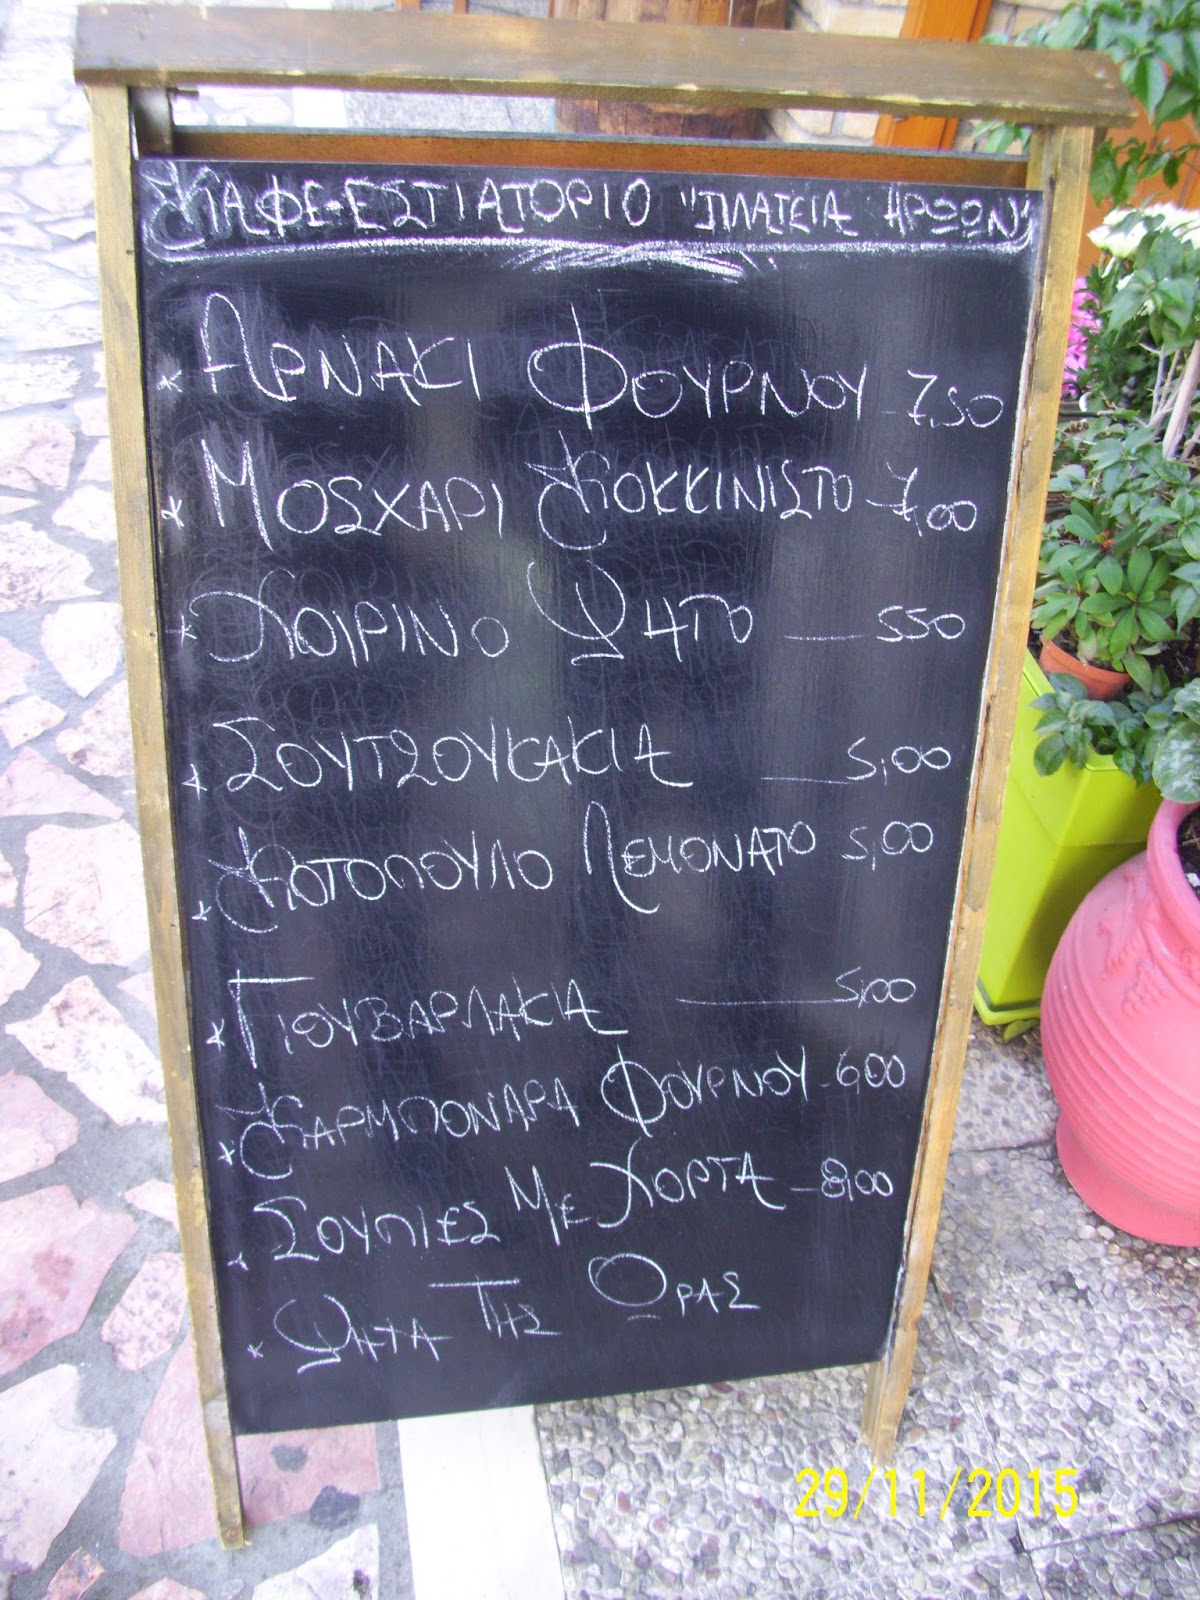 ΚΑΦΕ-ΕΣΤΙΑΤΟΡΙΟ "ΠΛΑΤΕΙΑ ΗΡΩΩΝ"
* ΑΡΝΑΚΙ ΦΟΥΡΝΟΥ - 7,50
* ΜΟΣΧΑΡΙ ΚΟΚΚΙΝΙΣΤΟ - 7,00
* ΧΟΙΡΙΝΟ ΨΗΤΟ — 550
* ΣΟΥΤΣΟΥΚΑΚΙΑ — 5,00
* ΚΟΤΟΠΟΥΛΟ ΛΕΜΟΝΑΤΟ 5,00
* ΓΙΟΥΒΑΡΛΑΚΙΑ — 5,00
* ΚΑΡΜΠΟΝΑΡΑ ΦΟΥΡΝΟΥ - 600
* ΣΟΥΠΙΕΣ ΜΕ ΧΟΡΤΑ - 8,00
* ΨΗΤΑ ΤΗΣ ΩΡΑΣ
29/11/2015